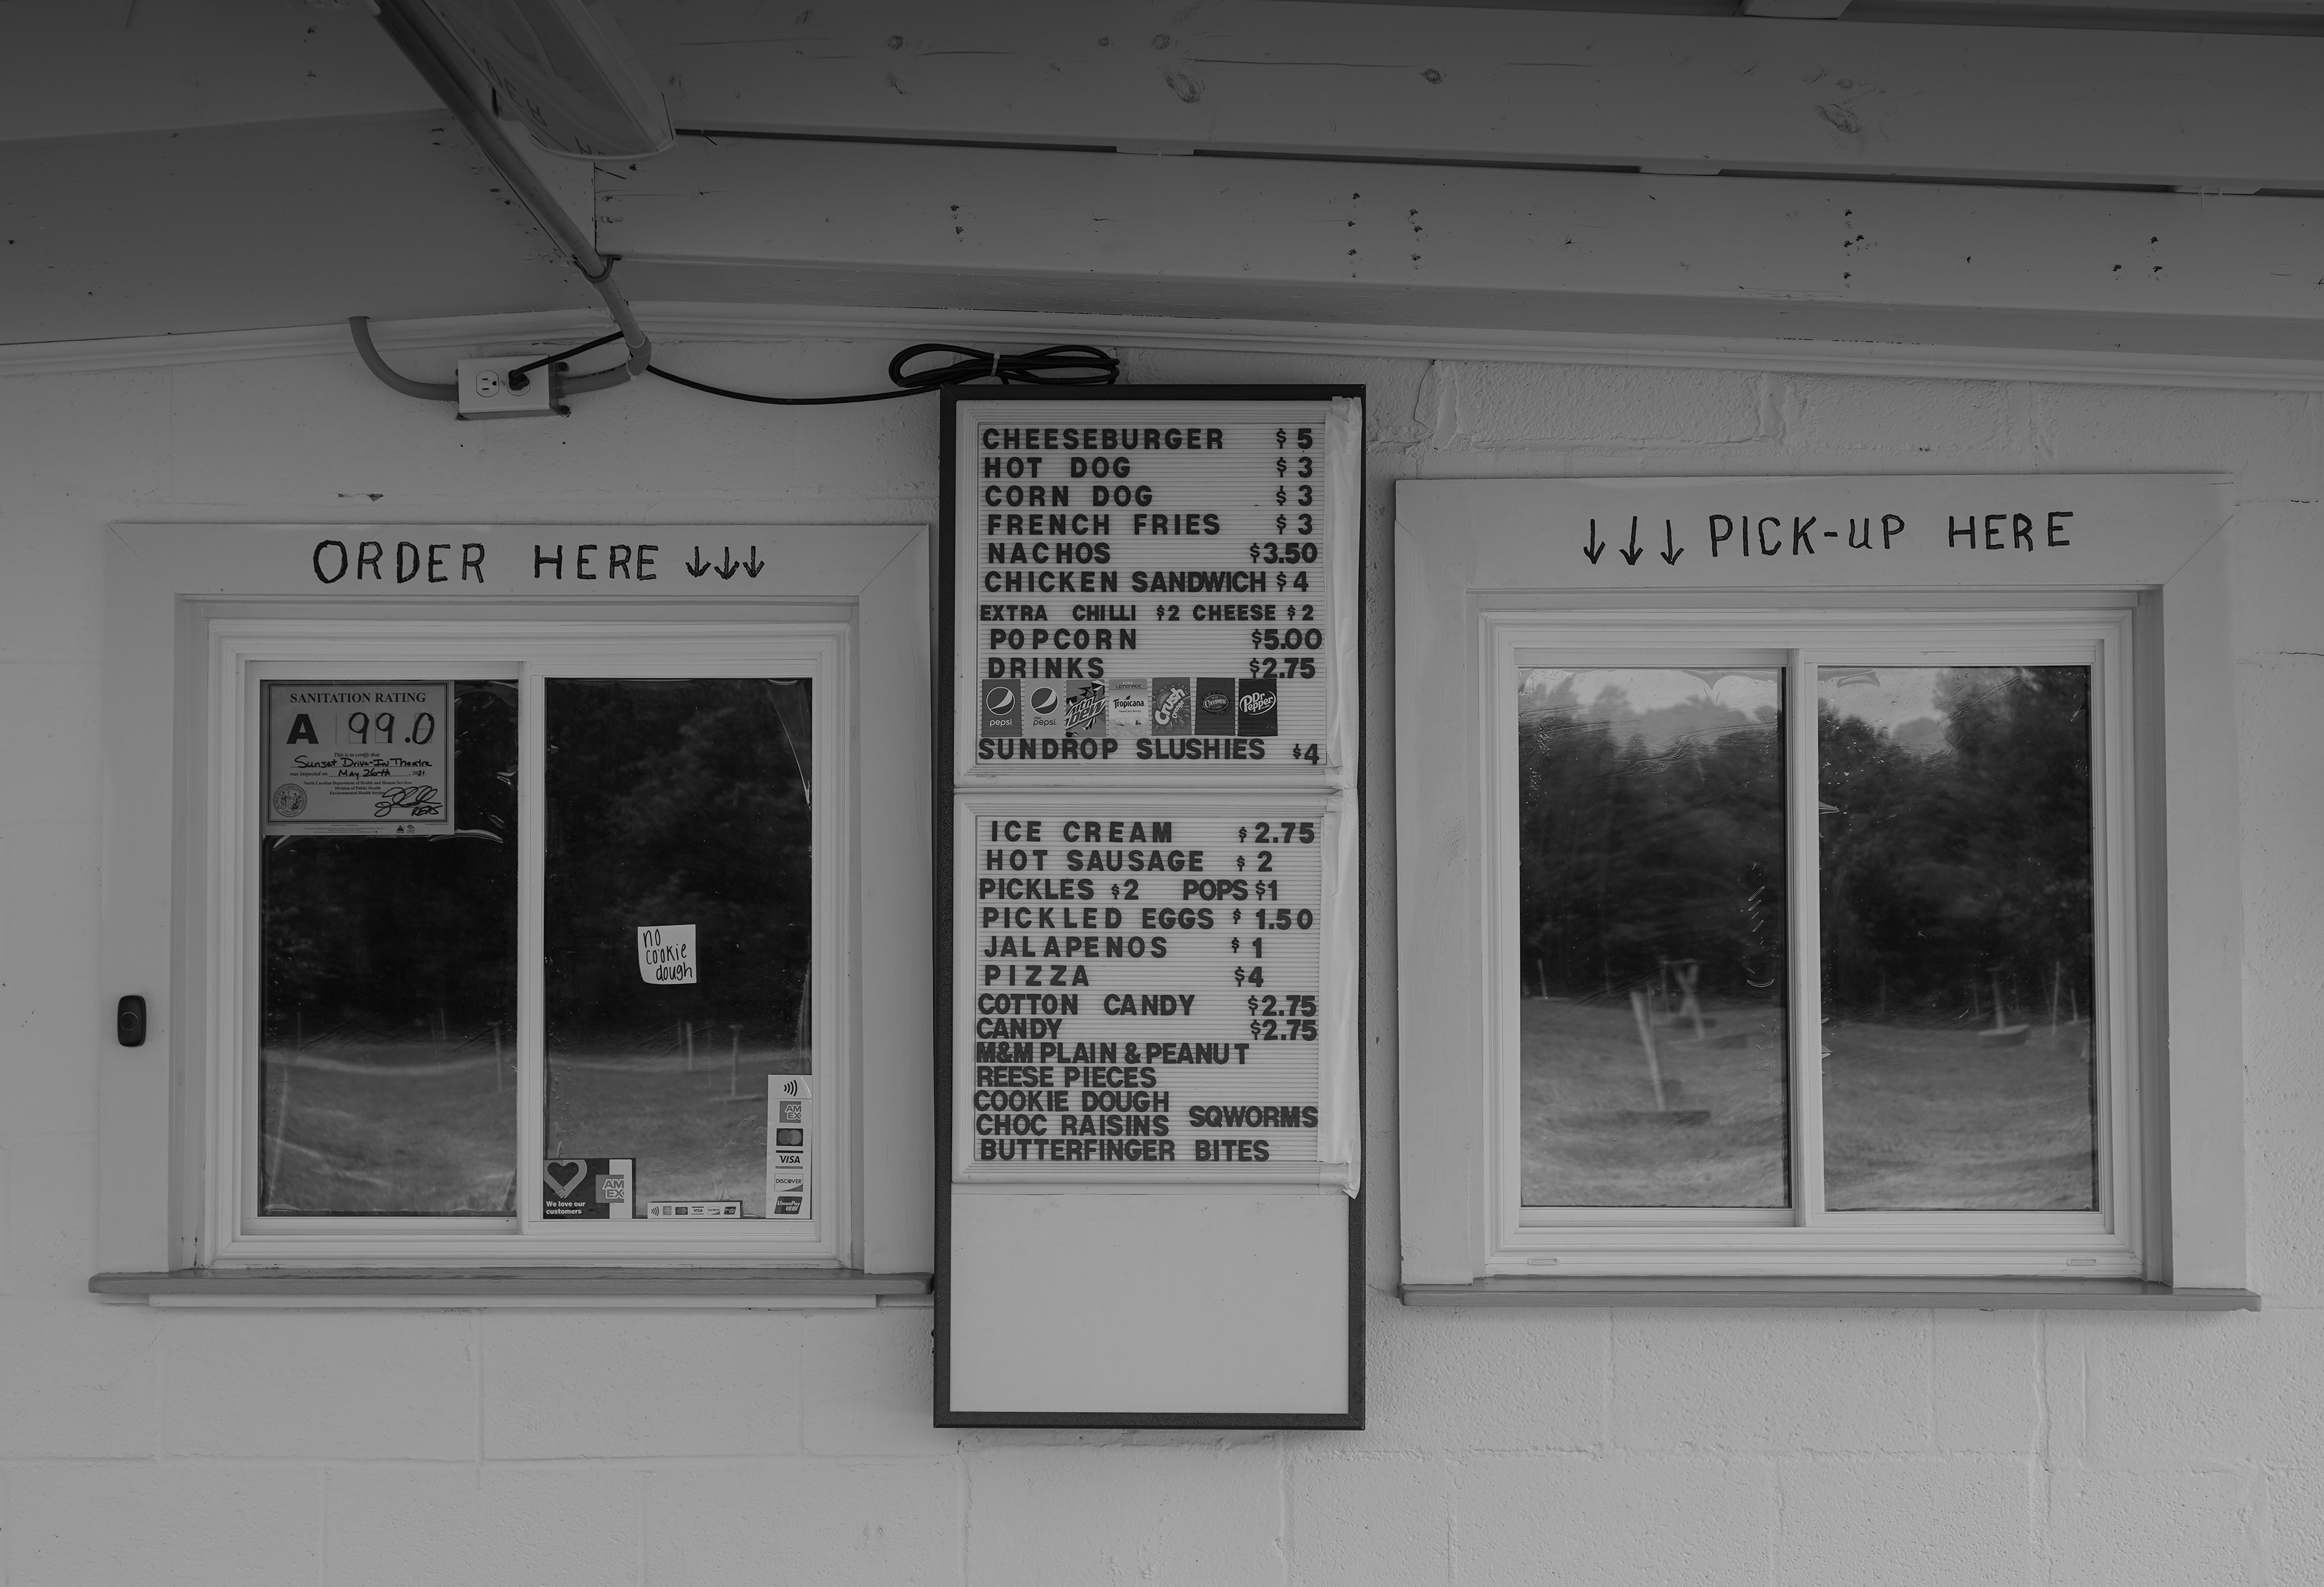 ORDER HERE ↓↓↓
SANITATION RATING
A 99.0
This is to certify that
Sunset Drive-In Theatre
was inspected on May 26th, 2021
North Carolina Department of Health and Human Services
Division of Public Health
Environmental Health Section
REHS
no
cookie
dough
AM
EX
VISA
DISCOVER
UnionPay
We love our
customers
AM
EX
VISA
CHEESEBURGER $5
HOT DOG $3
CORN DOG $3
FRENCH FRIES $3
NACHOS $3.50
CHICKEN SANDWICH $4
EXTRA CHILLI $2 CHEESE $2
POPCORN $5.00
DRINKS $2.75
pepsi pepsi Mtn Dew Tropicana Crush Cheerwine Dr Pepper
LEMONADE
SUNDROP SLUSHIES $4
ICE CREAM $2.75
HOT SAUSAGE $2
PICKLES $2 POPS $1
PICKLED EGGS $1.50
JALAPENOS $1
PIZZA $4
COTTON CANDY $2.75
CANDY $2.75
M&M PLAIN & PEANUT
REESE PIECES
COOKIE DOUGH
CHOC RAISINS SQWORMS
BUTTERFINGER BITES
↓↓↓ PICK-UP HERE